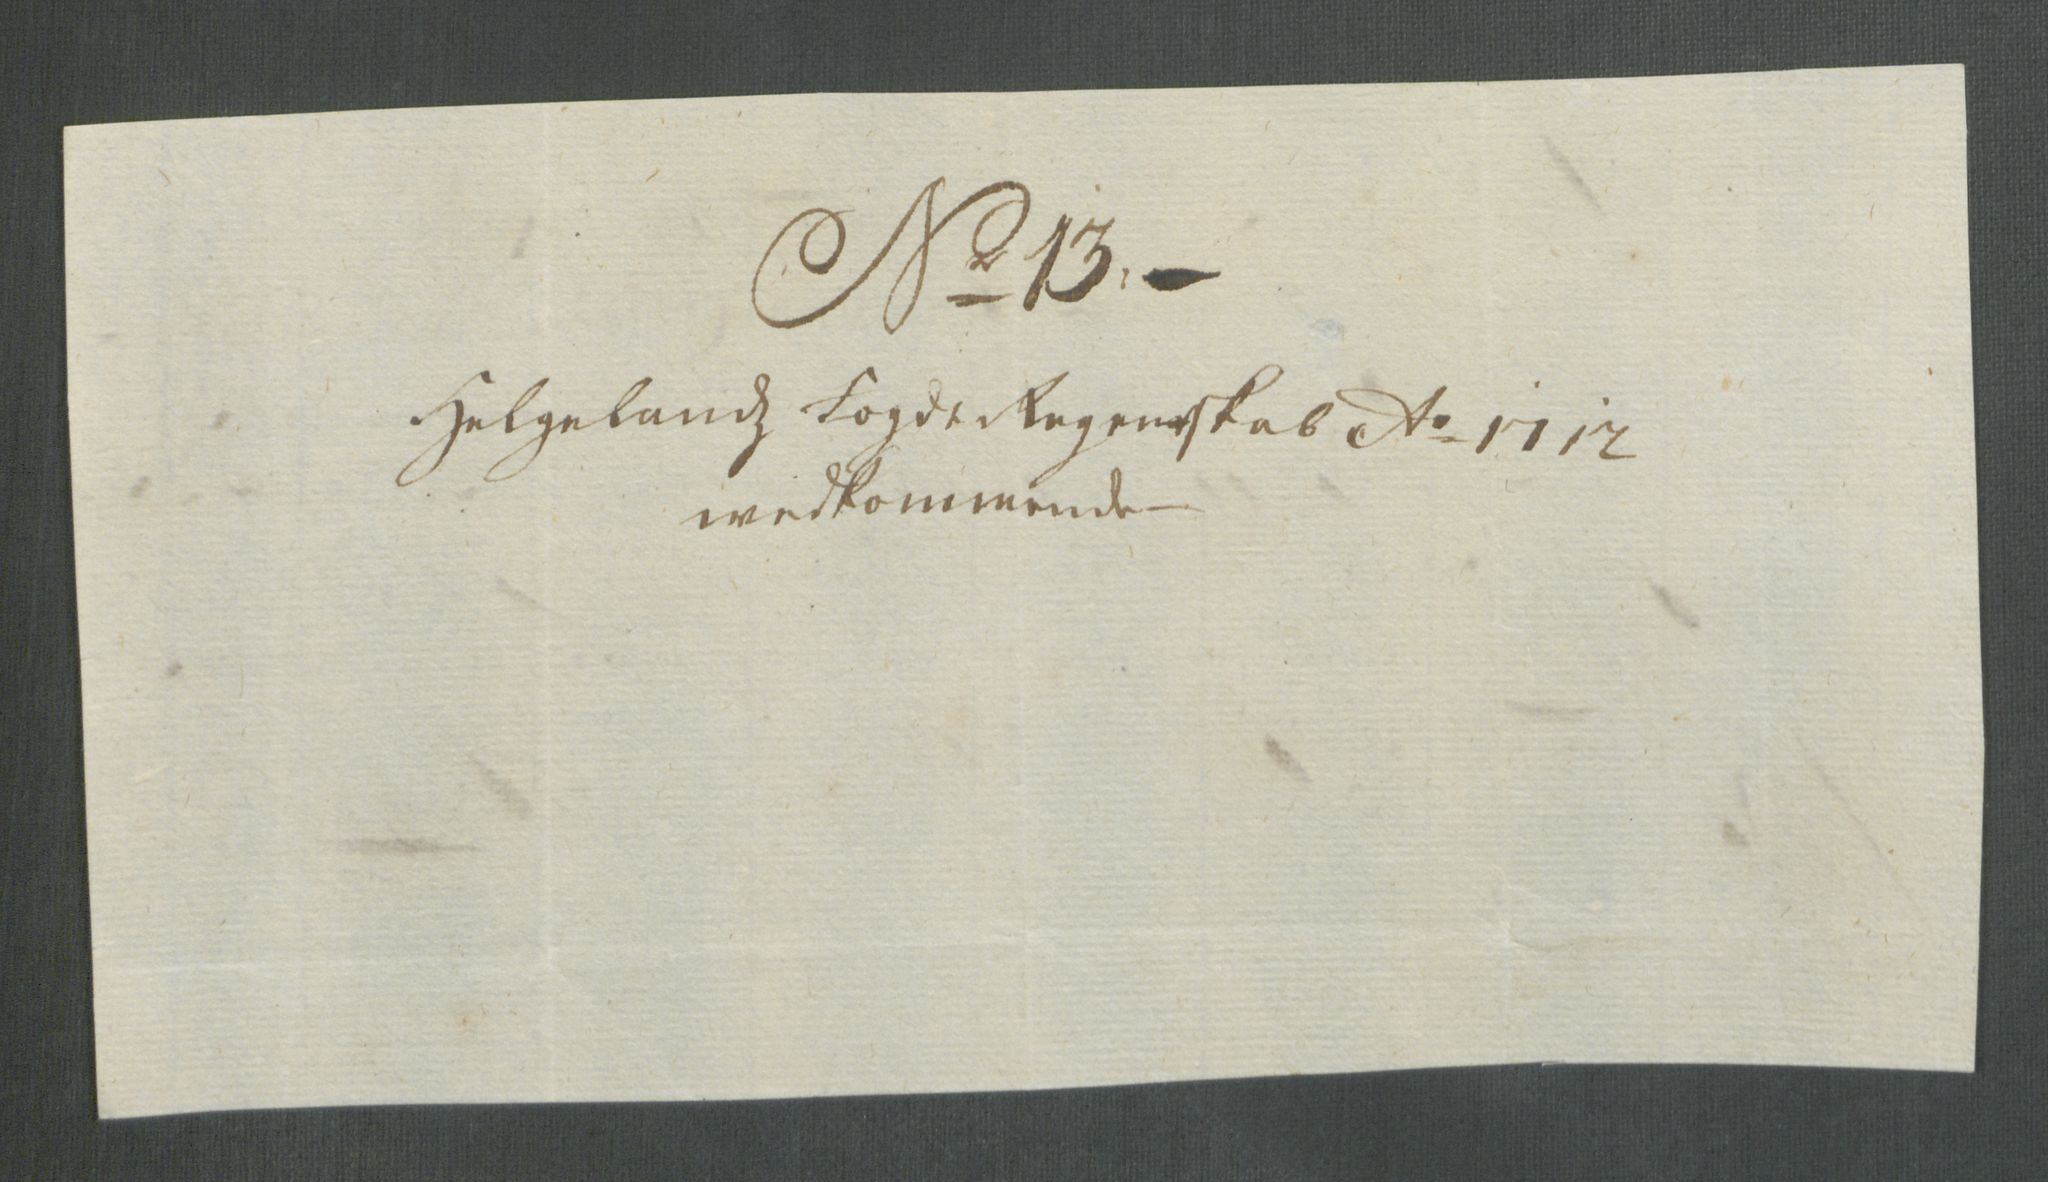 No 13. -
Helgelandz Fogde Regenskab Ao 1712
wedkommende -